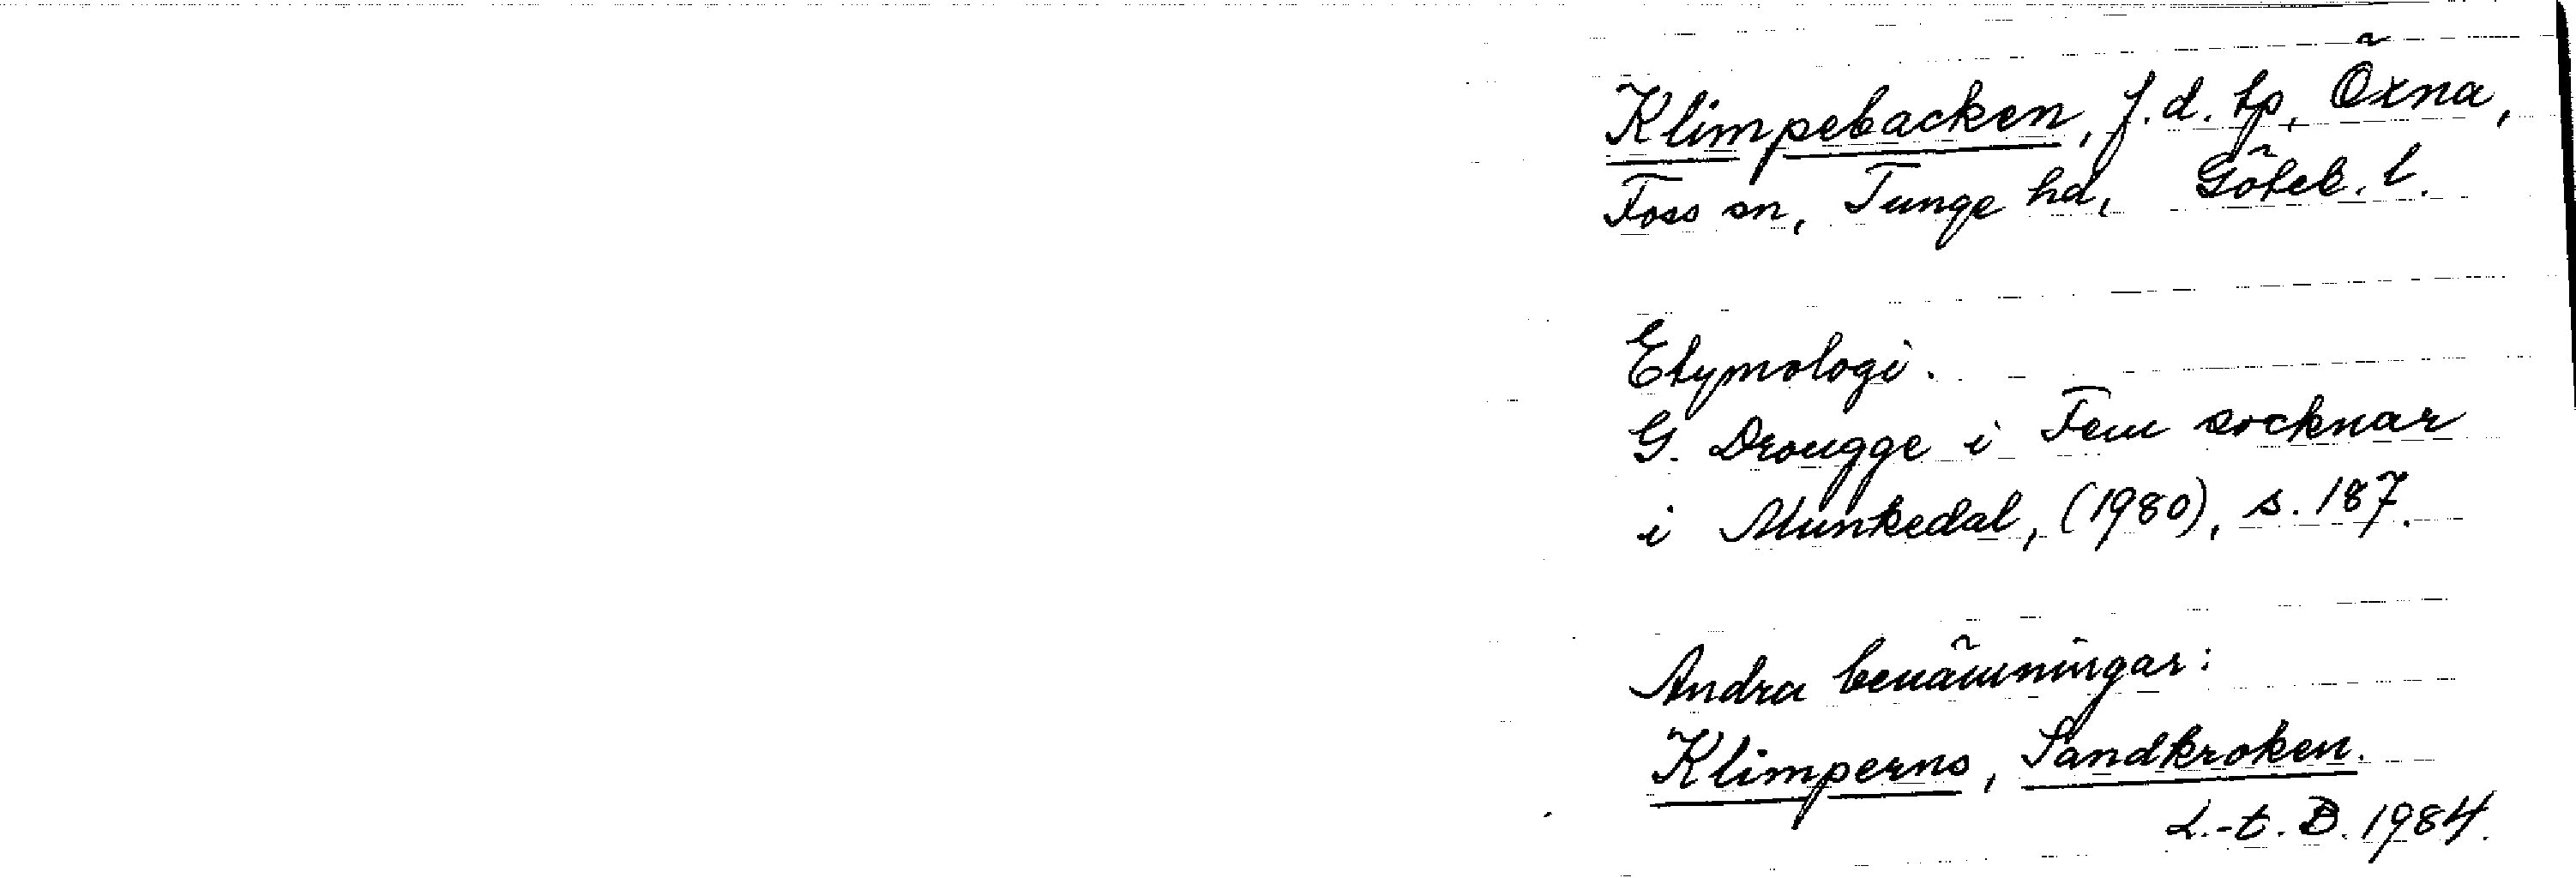 Klimpebacken, f.d. tp, Öxna,
Foss sn, Tunge hd, Göteb. l.
Etymologi.
G. Drougge i Fem socknar
i Munkedal, (1980), s. 187.
Andra benämningar:
Klimperns, Sandkroken.
L.-t. B. 1984.